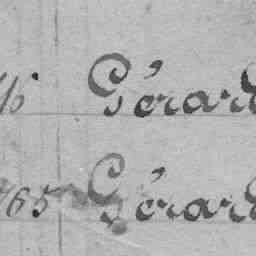 46 Gérard
765 Gérard